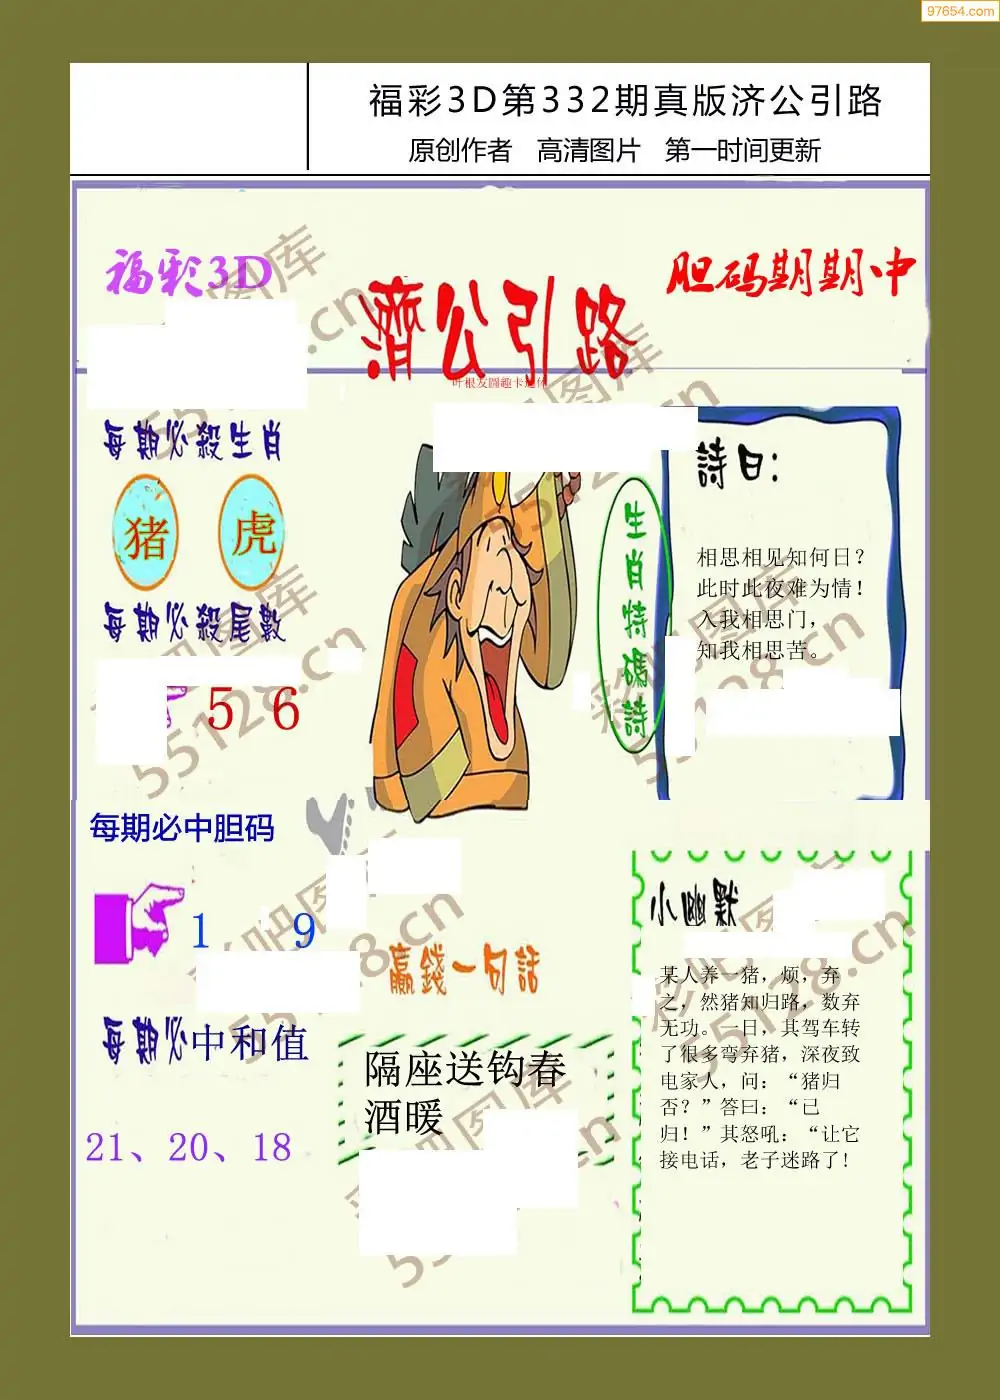 97654.com
福彩3D第332期真版济公引路
原创作者 高清图片 第一时间更新
福彩3D
濟公引路
胆码期期中
每期必殺生肖
猪 虎
每期必殺尾數
5 6
生肖特碼詩
詩曰:
相思相见知何日？
此时此夜难为情！
入我相思门，
知我相思苦。
每期必中胆码
1 9
每期必中和值
21、20、18
贏錢一句話
隔座送钩春
酒暖
小幽默
某人养一猪，烦，弃
之，然猪知归路，数弃
无功。一日，其驾车转
了很多弯弃猪，深夜致
电家人，问：“猪归
否？”答曰：“已
归！”其怒吼：“让它
接电话，老子迷路了!
彩吧图库
55128.cn